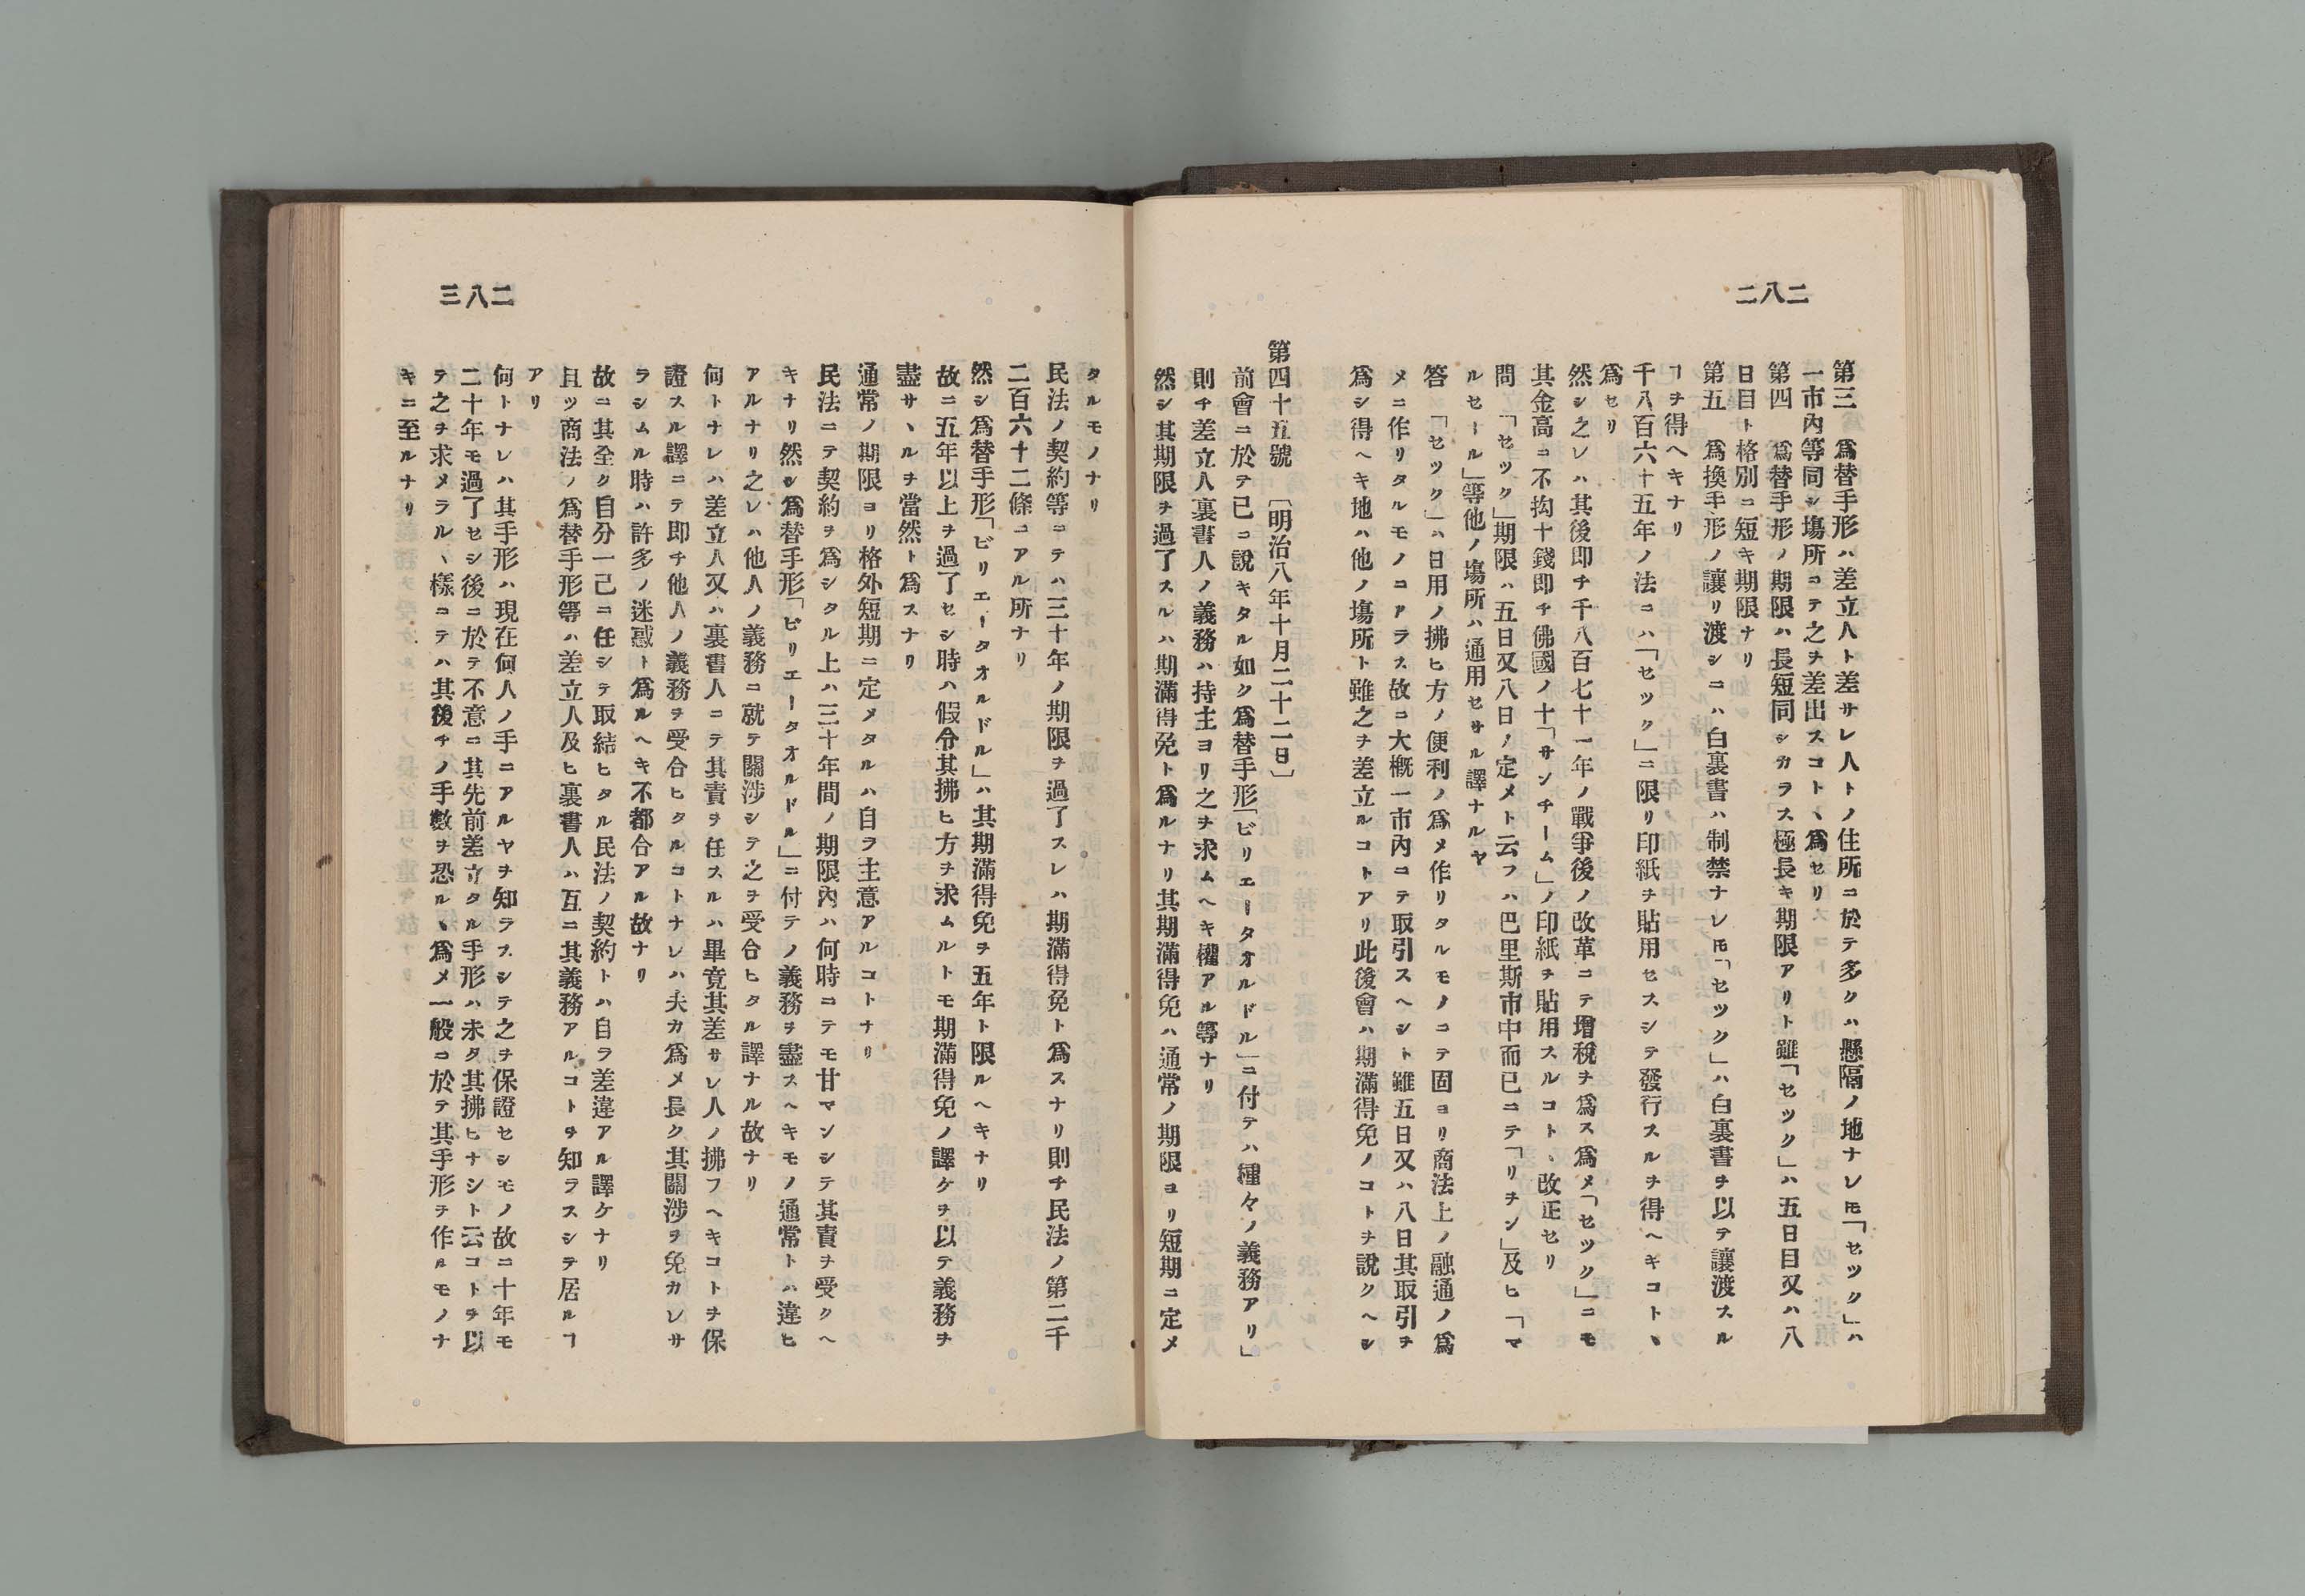 二八二
第三　爲替手形ハ差立人ト差サレ人トノ住所ニ於テ多クハ懸隔ノ地ナレ𪜈「セツク」ハ
一市內等同シ塲所ニテ之ヲ差出スコトヽ爲セリ
第四　爲替手形ノ期限ハ長短同シカラス極長キ期限アリト雖「セツク」ハ五日目又ハ八
日目ト格別ニ短キ期限ナリ
第五　爲換手形ノ讓リ渡シニハ白裏書ハ制禁ナレ𪜈「セツク」ハ白裏書ヲ以テ讓渡スル
ヿヲ得ヘキナリ
千八百六十五年ノ法ニハ「セツク」ニ限リ印紙ヲ貼用セスシテ發行スルヲ得ヘキコトヽ
爲セリ
然シ之レハ其後即チ千八百七十一年ノ戰爭後ノ改革ニテ增稅ヲ爲ス爲メ「セツク」ニモ
其金高ニ不拘十錢即チ佛國ノ十「サンチーム」ノ印紙ヲ貼用スルコトヽ改正セリ
問　「セツク」期限ハ五日又八日ノ定メト云フハ巴里斯市中而已ニテ「リヲン」及ヒ「マ
ルセール」等他ノ塲所ハ通用セサル譯ナルヤ
答　「セツク」ハ日用ノ拂ヒ方ノ便利ノ爲メ作リタルモノニテ固ヨリ商法上ノ融通ノ爲
メニ作リタルモノニアラス故ニ大槪一市內ニテ取引スヘシト雖五日又ハ八日其取引ヲ
爲シ得ヘキ地ハ他ノ塲所ト雖之ヲ差立ルコトアリ此後會ハ期滿得免ノコトヲ說クヘシ
第四十五號　〔明治八年十月二十二日〕
前會ニ於テ已ニ說キタル如ク爲替手形「ビリエータオルドル」ニ付テハ種々ノ義務アリ」
則チ差立人裏書人ノ義務ハ持主ヨリ之ヲ求ムヘキ權アル等ナリ
然シ其期限ヲ過了スルハ期滿得免ト爲ルナリ其期滿得免ハ通常ノ期限ヨリ短期ニ定メ
二八三
タルモノナリ
民法ノ契約等ニテハ三十年ノ期限ヲ過了スレハ期滿得免ト爲スナリ則チ民法ノ第二千
二百六十二條ニアル所ナリ
然シ爲替手形「ビリエータオルドル」ハ其期滿得免ヲ五年ト限ルヘキナリ
故ニ五年以上ヲ過了セシ時ハ假令其拂ヒ方ヲ求ムルトモ期滿得免ノ譯ケヲ以テ義務ヲ
盡サヽルヲ當然ト爲スナリ
通常ノ期限ヨリ格外短期ニ定メタルハ自ラ主意アルコトナリ
民法ニテ契約ヲ爲シタル上ハ三十年間ノ期限內ハ何時ニテモ甘マンシテ其責ヲ受クヘ
キナリ然シ爲替手形「ビリエータオルドル」ニ付テノ義務ヲ盡スヘキモノ通常トハ違ヒ
アルナリ之レハ他人ノ義務ニ就テ關涉シテ之ヲ受合ヒタル譯ナル故ナリ
何トナレハ差立人又ハ裏書人ニテ其責ヲ任スルハ畢竟其差サレ人ノ拂フヘキコトヲ保
證スル譯ニテ即チ他人ノ義務ヲ受合ヒタルコトナレハ夫カ爲メ長ク其關涉ヲ免カレサ
ラシムル時ハ許多ノ迷惑ト爲ルヘキ不都合アル故ナリ
故ニ其全ク自分一己ニ任シテ取結ヒタル民法ノ契約トハ自ラ差違アル譯ケナリ
且ツ商法ノ爲替手形等ハ差立人及ヒ裏書人ハ互ニ其義務アルコトヲ知ラスシテ居ルヿ
アリ
何トナレハ其手形ハ現在何人ノ手ニアルヤヲ知ラスシテ之ヲ保證セシモノ故ニ十年モ
二十年モ過了セシ後ニ於テ不意ニ其先前差立タル手形ハ未タ其拂ヒナシト云コトヲ以
テ之ヲ求メラルヽ樣ニテハ其後チノ手數ヲ恐ルヽ爲メ一般ニ於テ其手形ヲ作ルモノナ
キニ至ルナリ